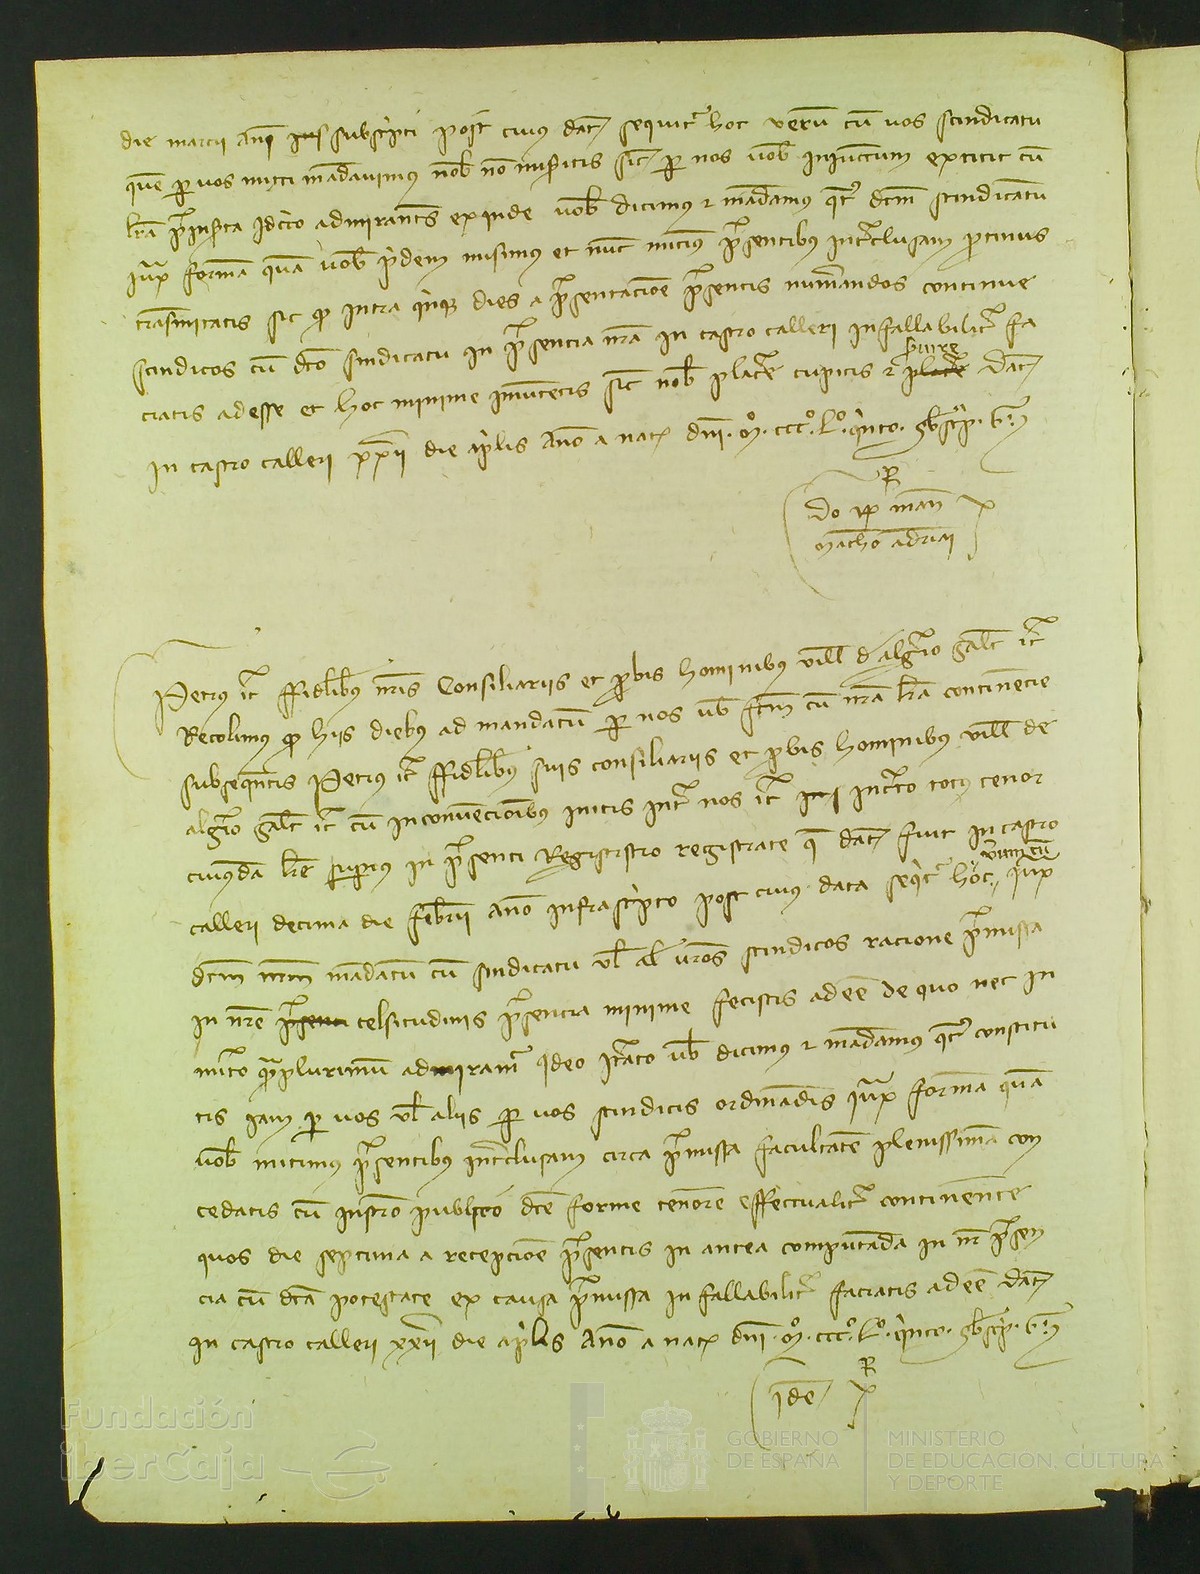 die marcii anni subscripti post cuius dat sequitur hoc verum cum vos scindicatu
quem per vos mitti mandavimus nobis non miseritis sicut per nos vobis iniunctum extitit cum
littera preinserta idcirco admirantes exinde vobis dicimus et mandamus quatenus dictum scindicatum
iuxta formam quam vobis pridem misimus et nunc mittimus presentibus interclusam protinus
transmitatis sic quod intra quinque dies a presentacione presentis numerandos continue
scindicos cum dicto sindicatu in presencia nostra in castro calleri infallabiliter fa
ciatis adesse et hoc minime inmutetis sicut nobis placere cupitis et servire dat
in castro calleri die aprilis anno a nat dni mo ccco lo quinto
R
mandato
Petrus etc ffidelibus nostris Consiliariis et probis hominibus ville d algerio salutem etc
Recolimus quod hiis diebus ad mandatum per nos vobis factum cum nostra littera continencie
subsequentis Petrus etc ffidelibus suis consiliariis et probis hominibus ville de
algerio salutem etc cum in convencionibus initis inter nos etc inserto toto tenor
cuiusdam littere superius in presenti Registro registrate que dat fuit in castro
verum cum
calleri decima die febrii anno infrascripto post cuius data sequitur hoc iuxta
dictum nostrum mandatum cum sindicatu vel al vestros scindicos racione premissa
in nostre celsitudinis presencia minime fecistis adesse de quo nec in
merito quamplurimum admiramur ideo iterato vobis dicimus et mandamus quatenus constitu
tis iam per vos vel aliis per vos scindicis ordinandis iuxta formam quam
vobis mitimus presentibus interclusam circa premissa facultatem plenissimam con
cedatis cum instrumento publico dicte forme tenorem effectualiter continente
quos die septima a recepcione presentis in antea computanda in nostra presen
cia cum dicta potestate ex causa premissa infallabiliter faciatis adesse dat
in castro calleri xxii die aprilis Anno a nat dni mo ccco lo quinto
R
idem
Fundación
iberCaja
GOBIERNO
DE ESPAÑA
MINISTERIO
DE EDUCACIÓN, CULTURA
Y DEPORTE